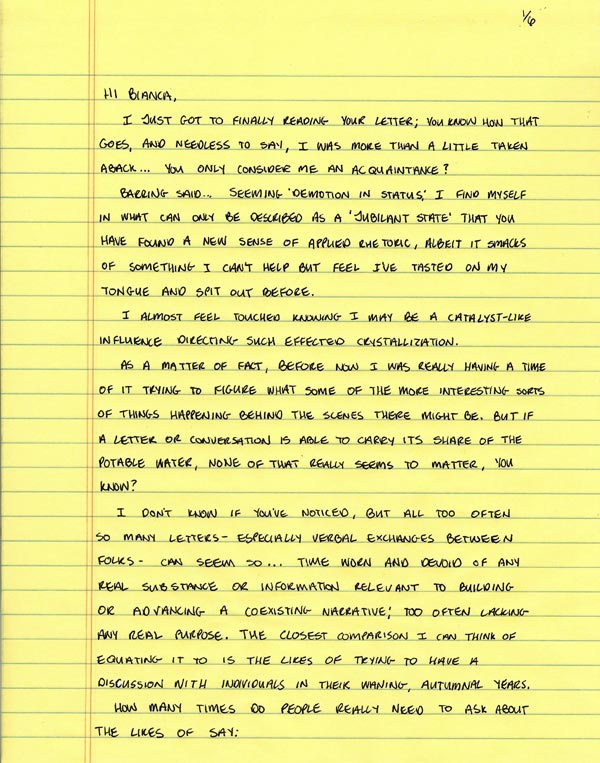 1/6
HI BIANCA,
I JUST GOT TO FINALLY READING YOUR LETTER; YOU KNOW HOW THAT
GOES, AND NEEDLESS TO SAY, I WAS MORE THAN A LITTLE TAKEN
ABACK... YOU ONLY CONSIDER ME AN ACQUAINTANCE?
BARRING SAID... SEEMING 'DEMOTION IN STATUS,' I FIND MYSELF
IN WHAT CAN ONLY BE DESCRIBED AS A 'JUBILANT STATE' THAT YOU
HAVE FOUND A NEW SENSE OF APPLIED RHETORIC, ALBEIT IT SMACKS
OF SOMETHING I CAN'T HELP BUT FEEL I'VE TASTED ON MY
TONGUE AND SPIT OUT BEFORE.
I ALMOST FEEL TOUCHED KNOWING I MAY BE A CATALYST-LIKE
INFLUENCE DIRECTING SUCH EFFECTED CRYSTALLIZATION.
AS A MATTER OF FACT, BEFORE NOW I WAS REALLY HAVING A TIME
OF IT TRYING TO FIGURE WHAT SOME OF THE MORE INTERESTING SORTS
OF THINGS HAPPENING BEHIND THE SCENES THERE MIGHT BE. BUT IF
A LETTER OR CONVERSATION IS ABLE TO CARRY ITS SHARE OF THE
POTABLE WATER, NONE OF THAT REALLY SEEMS TO MATTER, YOU
KNOW?
I DON'T KNOW IF YOU'VE NOTICED, BUT ALL TOO OFTEN
SO MANY LETTERS - ESPECIALLY VERBAL EXCHANGES BETWEEN
FOLKS - CAN SEEM SO... TIME WORN AND DEVOID OF ANY
REAL SUBSTANCE OR INFORMATION RELEVANT TO BUILDING
OR ADVANCING A COEXISTING NARRATIVE; TOO OFTEN LACKING
ANY REAL PURPOSE. THE CLOSEST COMPARISON I CAN THINK OF
EQUATING IT TO IS THE LIKES OF TRYING TO HAVE A
DISCUSSION WITH INDIVIDUALS IN THEIR WANING, AUTUMNAL YEARS.
HOW MANY TIMES DO PEOPLE REALLY NEED TO ASK ABOUT
THE LIKES OF SAY: